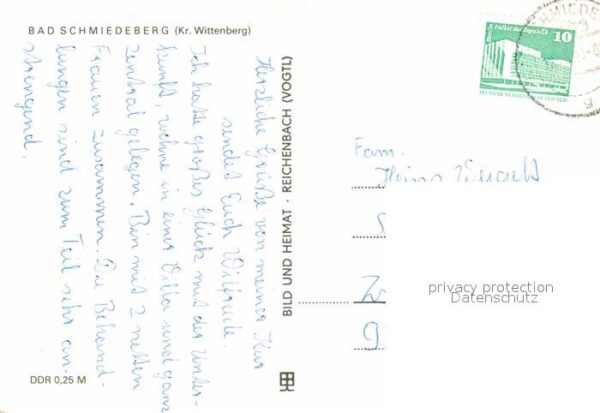 BAD SCHMIEDEBERG (Kr. Wittenberg)
Herzliche Grüße von meiner Kur
sendet Euch Wilfriede.
Ich hatte großes Glück mit der Unter-
kunft, wohne in einer Villa und ganz
zentral gelegen. Bin mit 2 netten
Frauen zusammen. Die Behand-
lungen sind zum Teil sehr an-
strengend.
DDR 0,25 M
BILD UND HEIMAT · REICHENBACH (VOGTL)
Berlin, Palast der Republik
10
DEUTSCHE DEMOKRATISCHE REPUBLIK
SCHMIEDE
Fam.
Heinz
privacy protection
Datenschutz